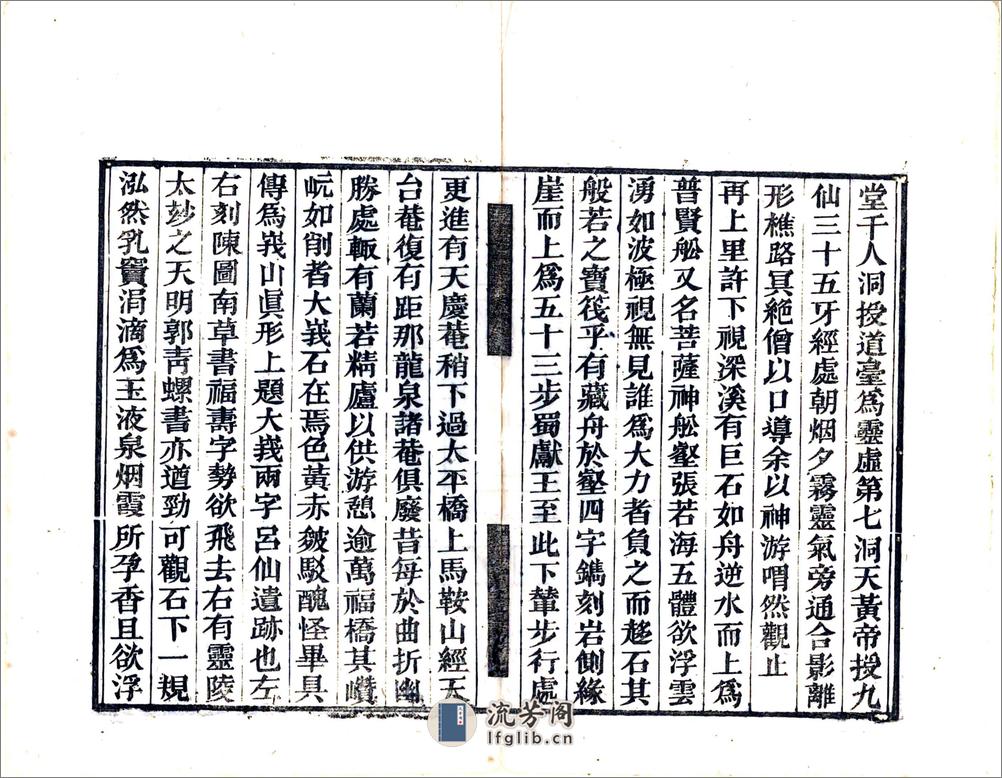 堂千人洞授道臺爲靈虛第七洞天黃帝授九
仙三十五牙經處朝烟夕霧靈氣旁通合影離
形樵路冥絕僧以口導余以神游喟然觀止
再上里許下視深溪有巨石如舟逆水而上爲
普賢舩又名菩薩神舩壑張若海五體欲浮雲
湧如波極視無見誰爲大力者負之而趍石其
般若之寶筏乎有藏舟於壑四字鐫刻岩側緣
崖而上爲五十三步蜀獻王至此下輦步行處
更進有天慶菴稍下過太平橋上馬鞍山經天
台菴復有距那龍泉諸菴俱廢昔每於曲折幽
勝處輙有蘭若精廬以供游憩逾萬福橋其巑
岏如削者大峩石在焉色黃赤皴駁醜怪畢具
傳爲峩山眞形上題大峩兩字呂仙遺跡也左
右刻陳圖南草書福壽字勢欲飛去右有靈陵
太玅之天明郭靑螺書亦遒勁可觀石下一規
泓然乳竇涓滴爲玉液泉烟霞所孕香且欲浮
流芳阁
lfglib.cn